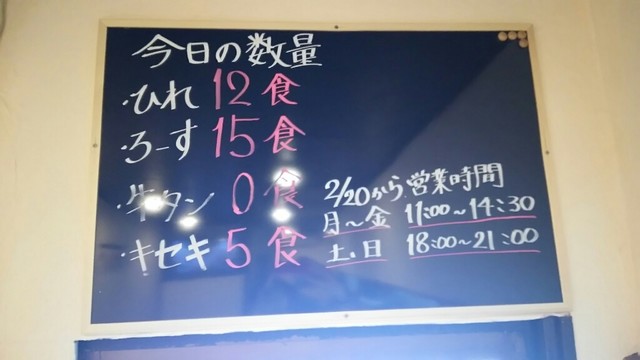 今日の数量
・ひれ 12食
・ろーす 15食
・牛タン 0食
・キセキ 5食
2/20から営業時間
月〜金 11:00〜14:30
土、日 18:00〜21:00